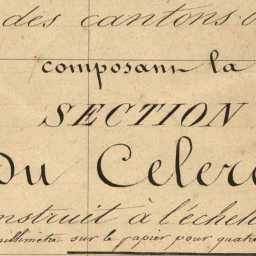 des cantons
composant la
SECTION
du Celer
nstruit à l'échel
millimètre sur le papier pour quatr